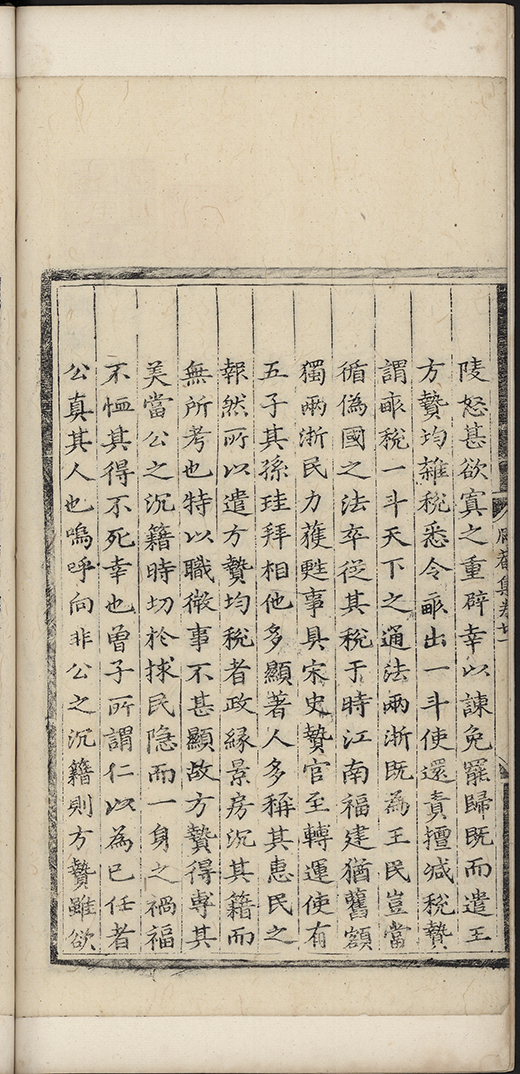 陵怒甚欲寘之重辟幸以諫免罷歸既而遣王
方贄均雜稅悉令畝出一斗使還責擅减稅贄
謂畝稅一斗天下之通法兩浙既為王民豈當
循偽國之法卒従其稅于時江南福建猶舊額
獨兩浙民力蕿甦事具宋史贄官至轉運使有
五子其孫珪拜相他多顯著人多稱其惠民之
報然所以遣方贄均稅者政縁景房沉其籍而
無所考也特以職微事不甚顯故方贄得専其
美當公之沉籍時切於捄民隐而一身之禍福
不恤其得不死幸也曽子所謂仁以為已任者
公真其人也嗚呼向非公之沉籍則方贄雖欲